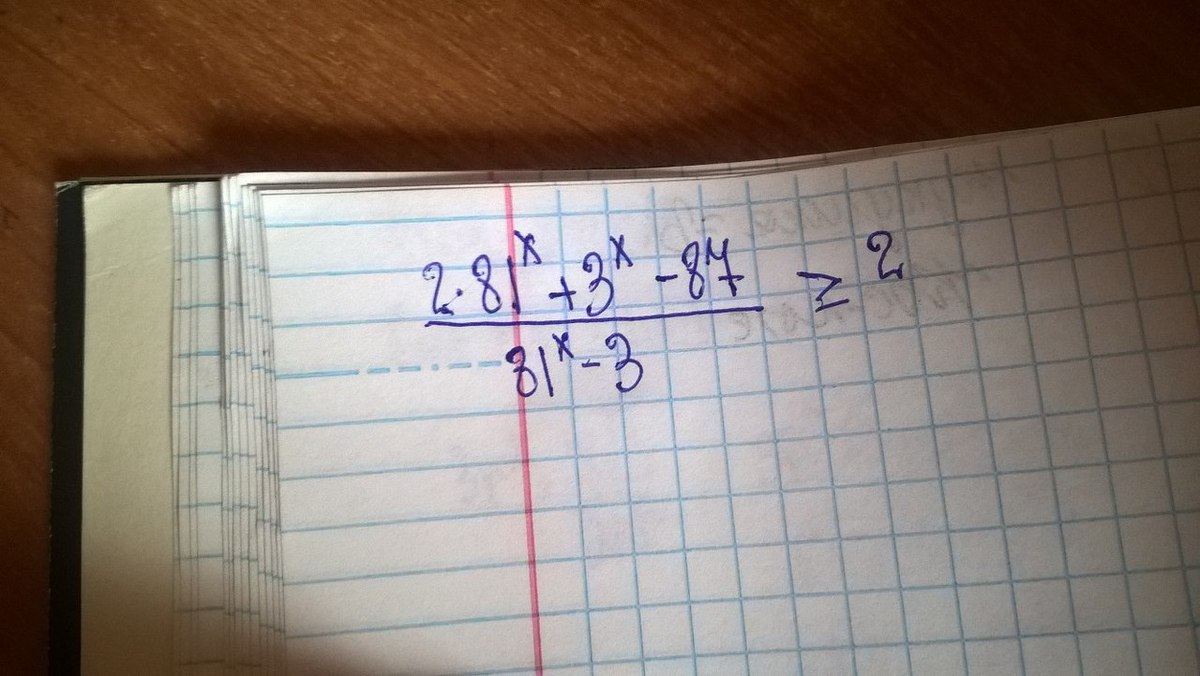 2·81^x + 3^x - 87 ≥ 2
81^x - 3